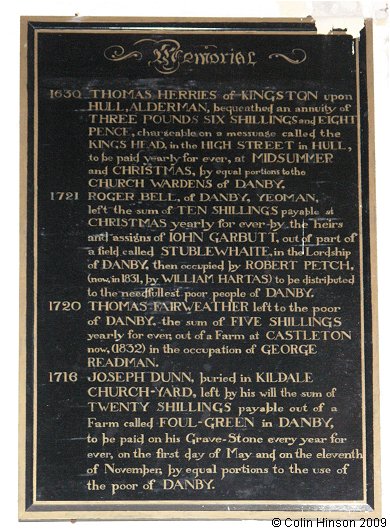 Memorial
1630 THOMAS HERRIES of KINGSTON upon
HULL, ALDERMAN, bequeathed an annuity of
THREE POUNDS SIX SHILLINGS and EIGHT
PENCE, chargeable on a message called the
KINGS HEAD, in the HIGH STREET in HULL,
to be paid yearly for ever, at MIDSUMMER
and CHRISTMAS, by equal portions to the
CHURCH WARDENS of DANBY.
1721 ROGER BELL, of DANBY, YEOMAN,
left the sum of TEN SHILLINGS payable at
CHRISTMAS yearly for ever by the heirs
and assigns of IOHN GARBUTT, out of part of
a field called STUBLEWHAITE, in the Lordship
of DANBY, then occupied by ROBERT PETCH,
(now, in 1831, by WILLIAM HARTAS) to be distributed
to the needfullest poor people of DANBY.
1720 THOMAS FAIRWEATHER left to the poor
of DANBY, the sum of FIVE SHILLINGS
yearly for ever, out of a Farm at CASTLETON
now, (1832) in the occupation of GEORGE
READMAN.
1716 JOSEPH DUNN, buried in KILDALE
CHURCH-YARD, left by his will the sum of
TWENTY SHILLINGS payable out of a
Farm called FOUL-GREEN in DANBY,
to be paid on his Grave-Stone every year for
ever, on the first day of May and on the eleventh
of November, by equal portions to the use of
the poor of DANBY.
© Colin Hinson 2009